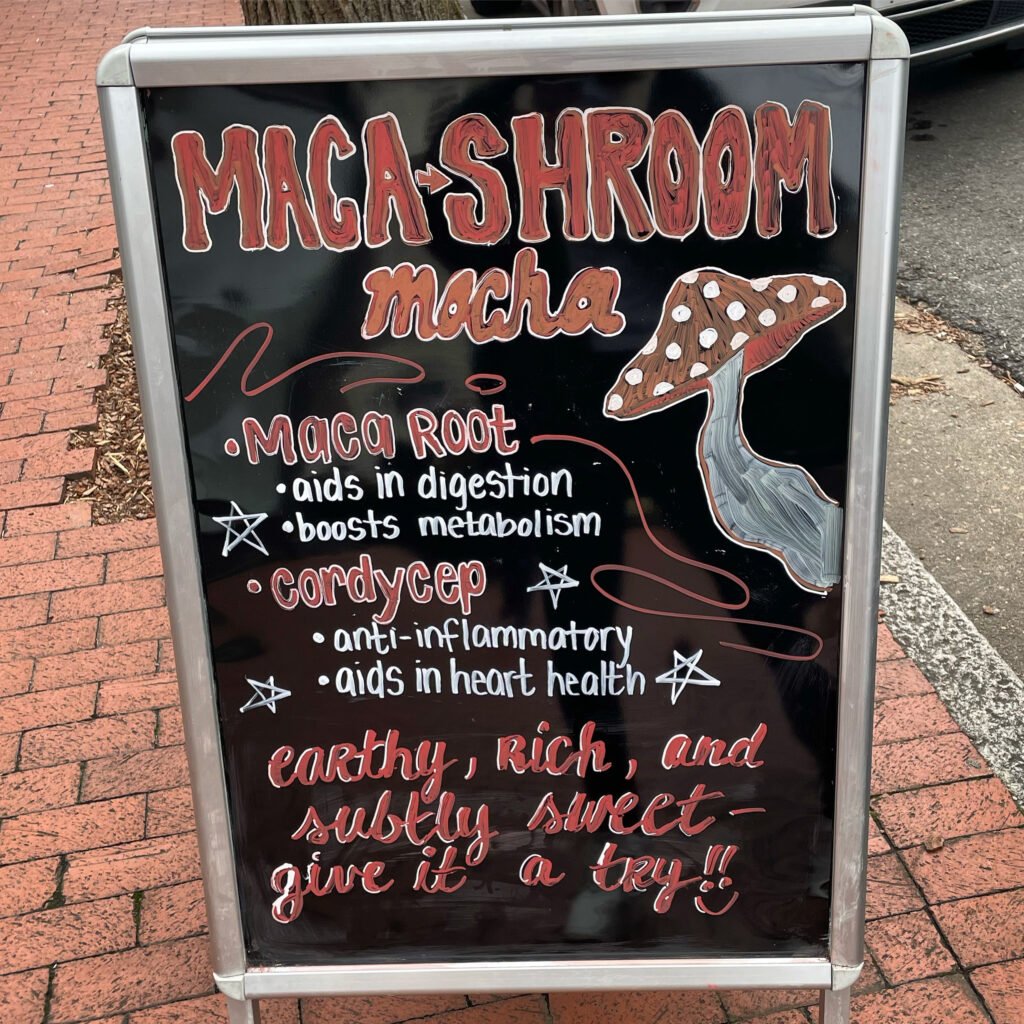 MACA→SHROOM
mocha
•Maca Root
•aids in digestion
•boosts metabolism
•cordycep
•anti-inflammatory
•aids in heart health
earthy, Rich, and
subtly sweet-
give it a try!!